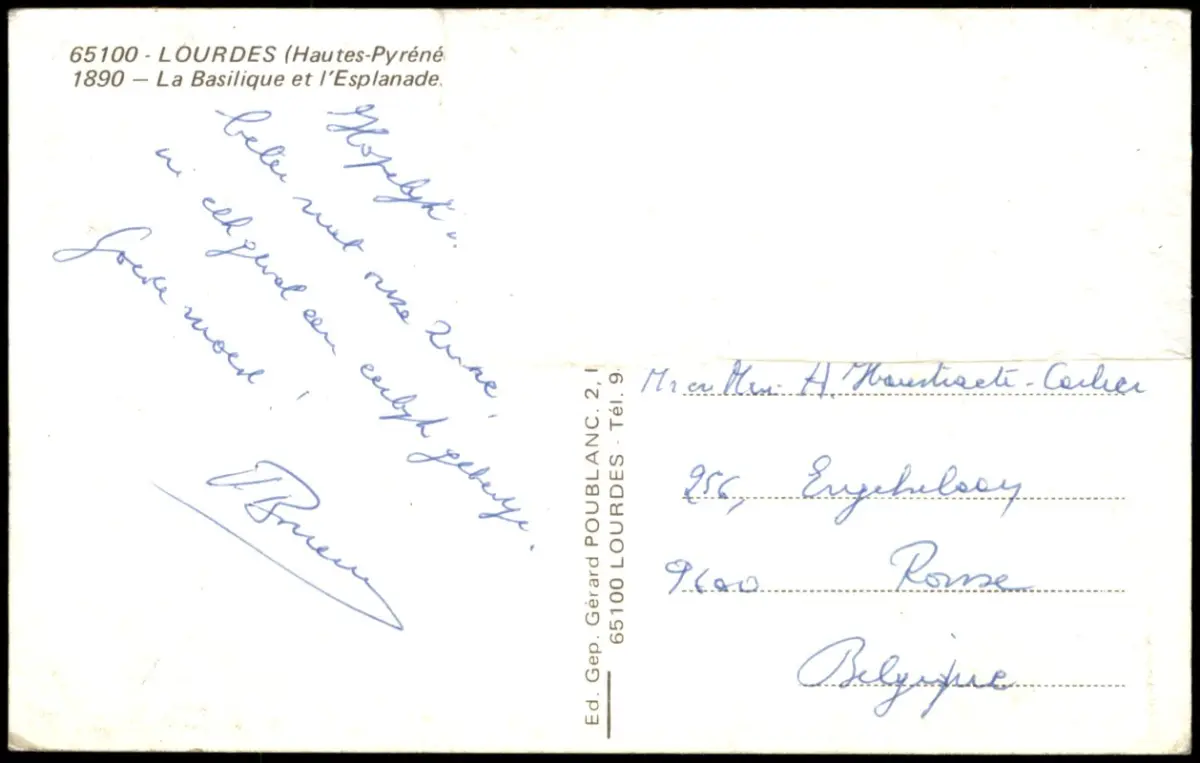 65100 - LOURDES (Hautes-Pyréné
1890 — La Basilique et l'Esplanade.
Hopelijk is
beter met onze Zuske,
in elk geval een eerlijk gebedje.
Goede moed !
Ed. Gep. Gérard POUBLANC. 2, 
65100 LOURDES - Tél. 9
Mr en Mevr A. Haustraete - Carlier
256, Engelselaan
9600 Ronse
Belgique